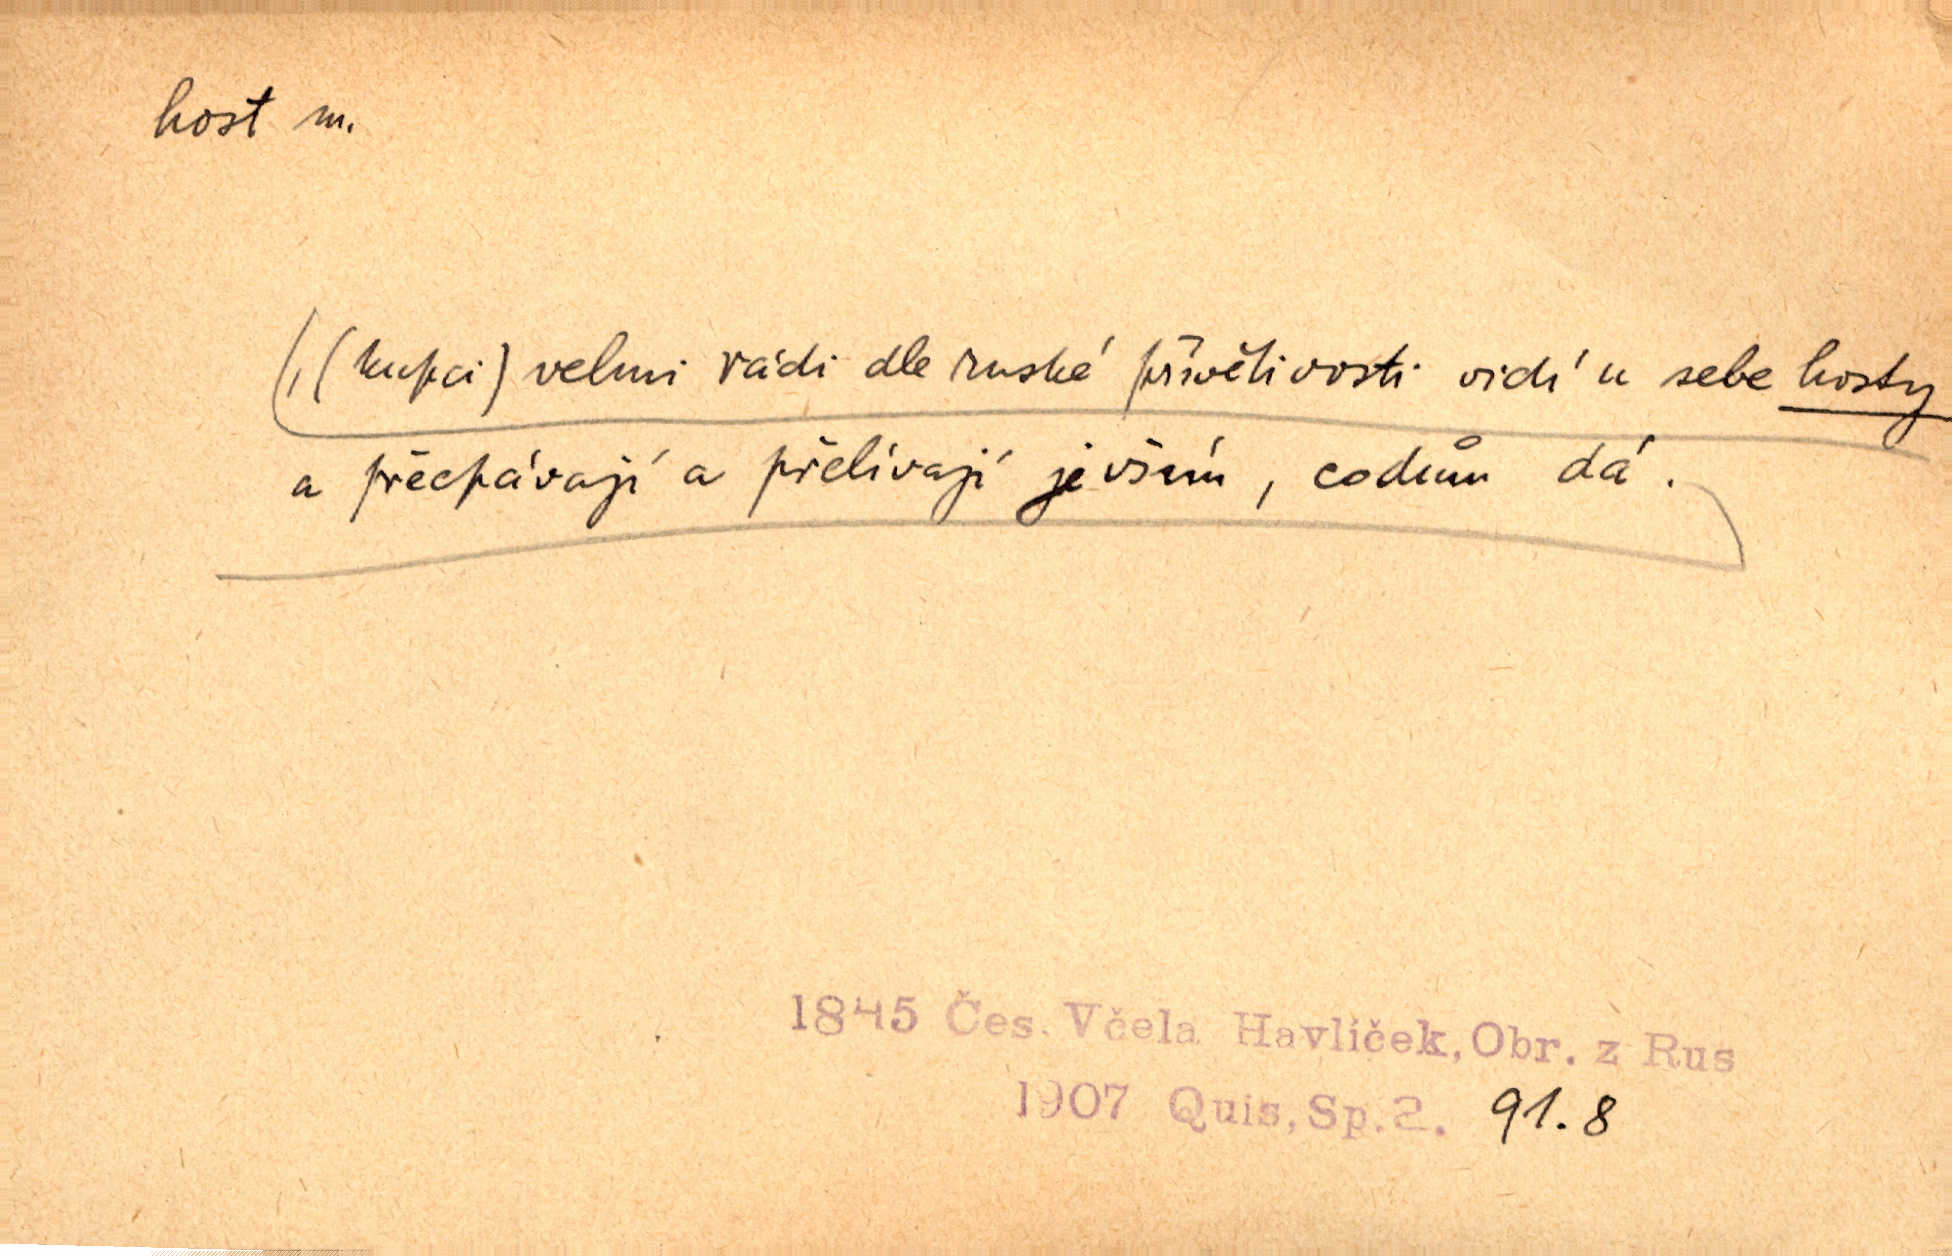 host m.
, (kupci) velmi rádi dle ruské přívětivosti vidí u sebe hosty
a přecpávají a přelívají je vším, co dům dá.
1845 Čes. Včela Havlíček, Obr. z Rus
1907 Quis, Sp. 2. 91.8